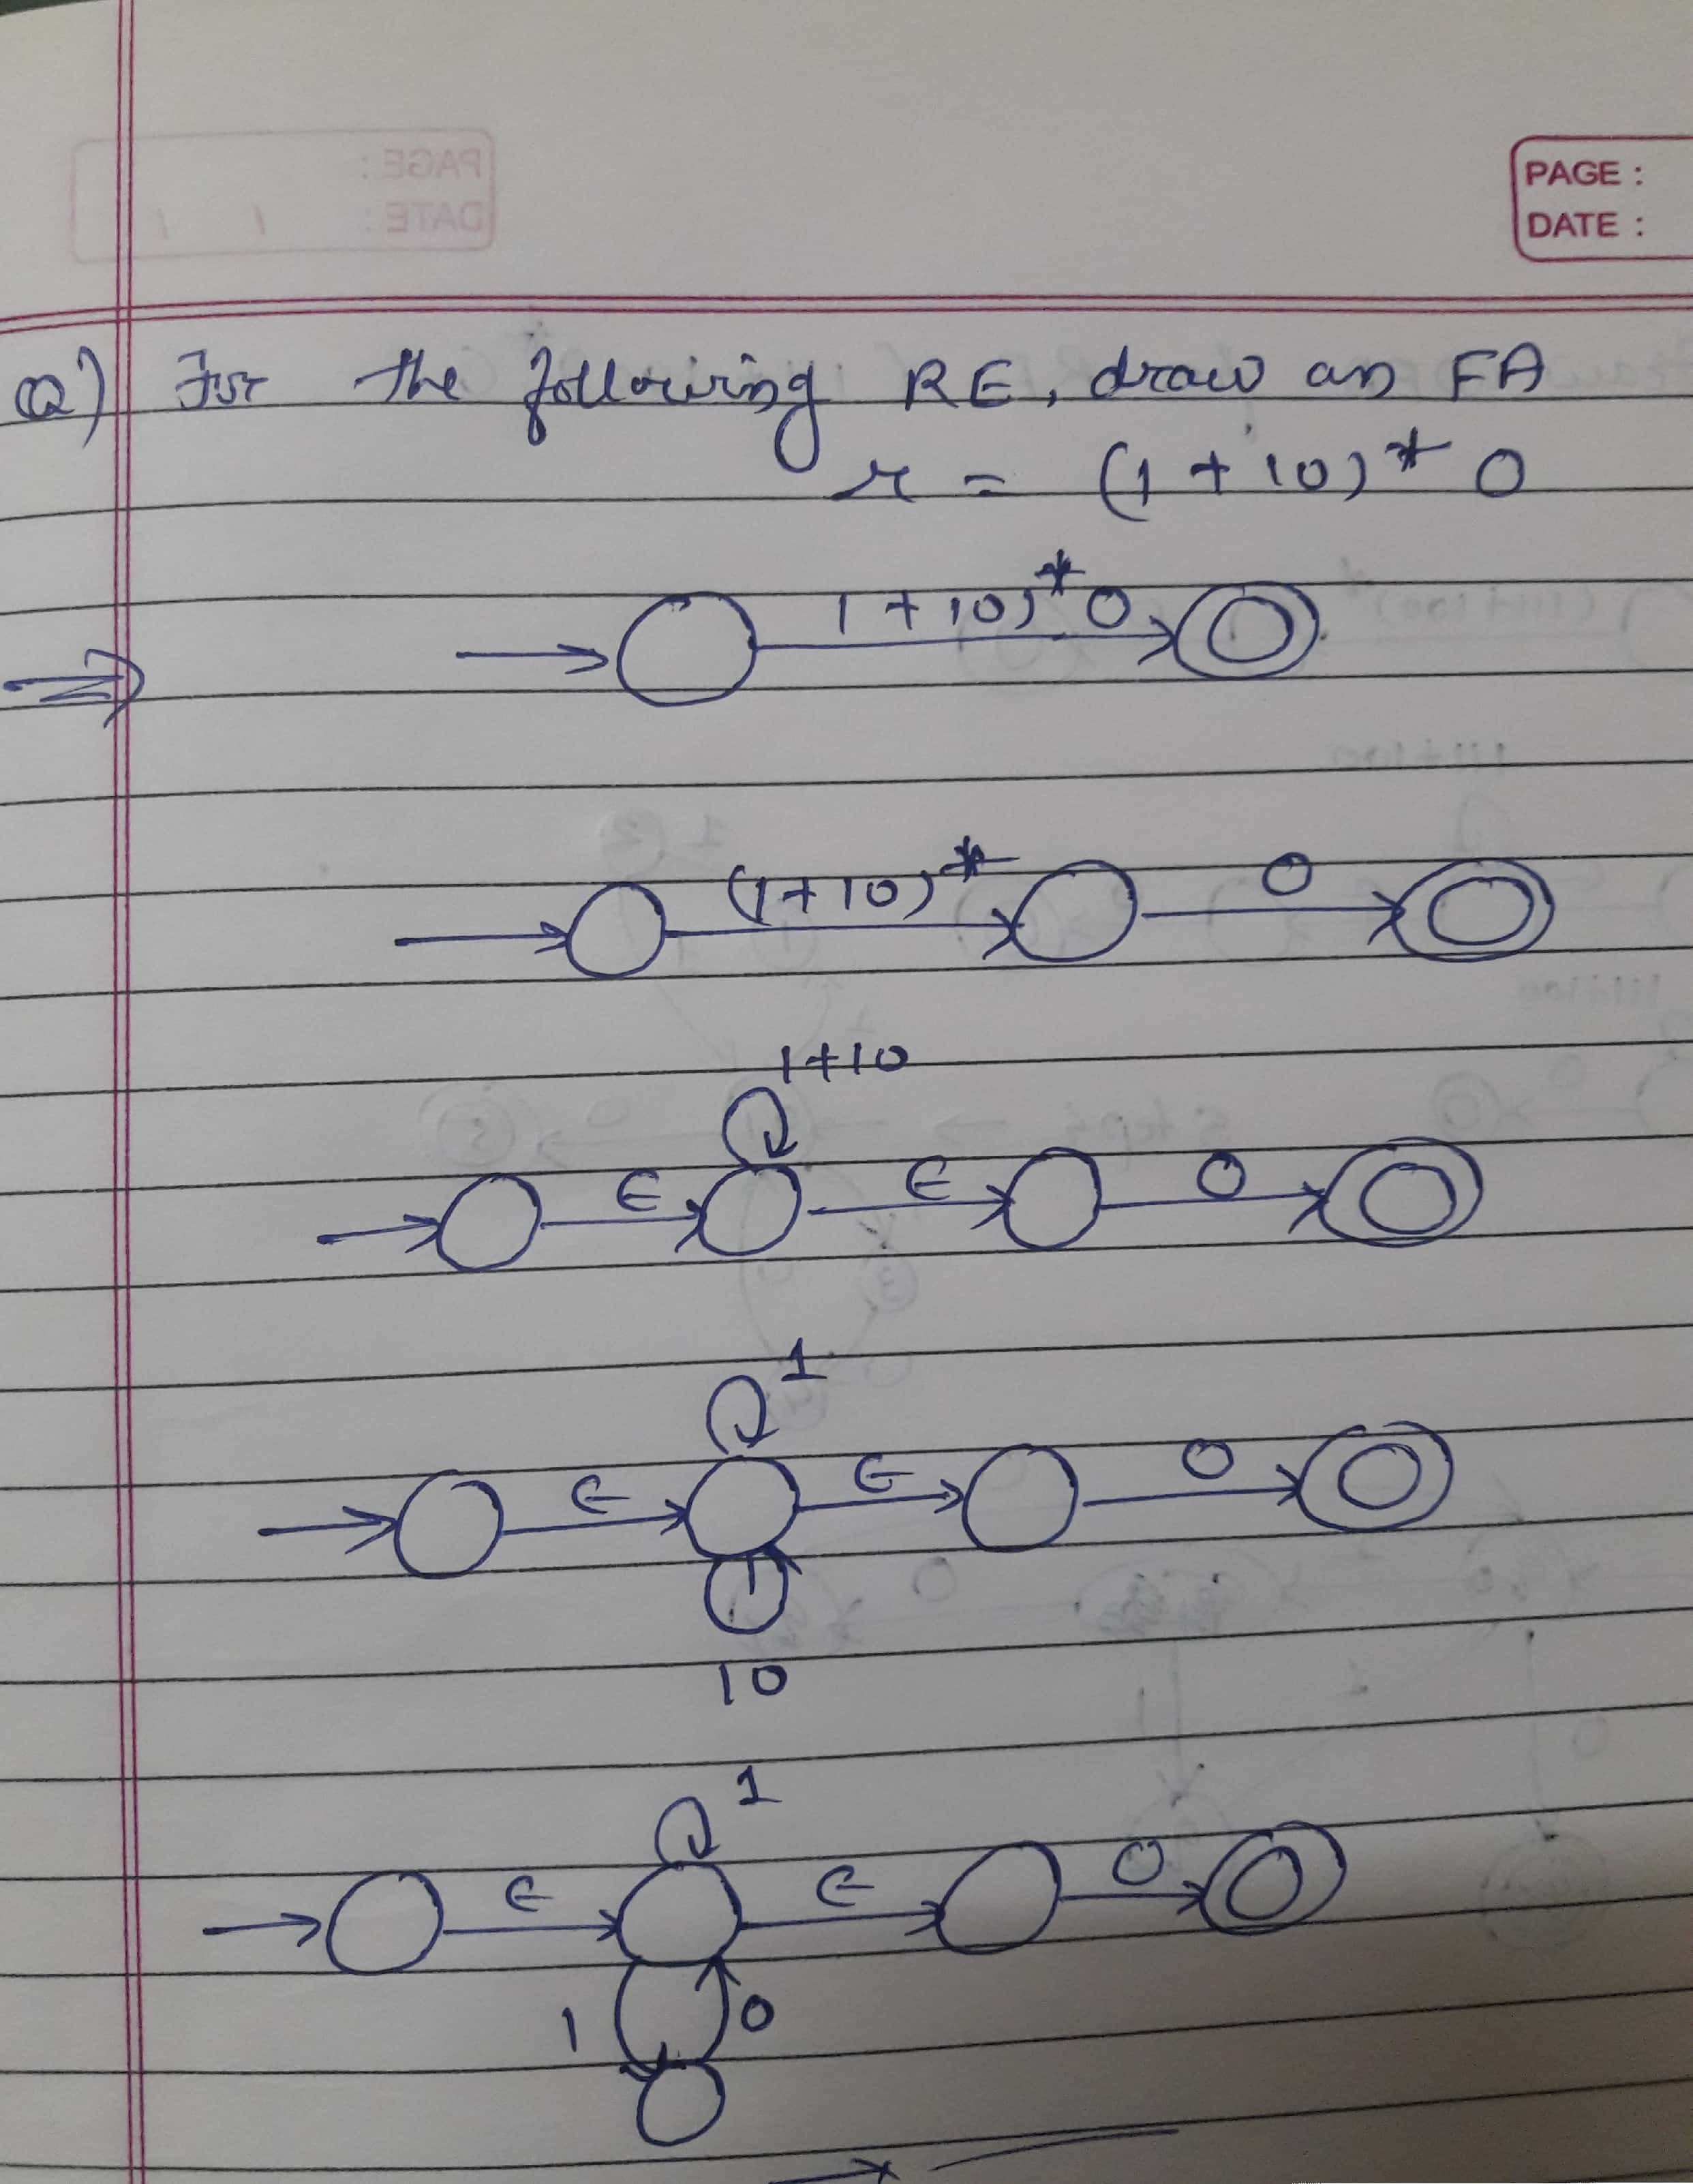 PAGE :
DATE :
Q) For the following RE, draw an FA
r = (1 + 10)* 0
1 + 10)* 0
(1+10)* 0
1+10
ϵ ϵ 0
1
ϵ ϵ 0
10
1
ϵ ϵ 0
1 0